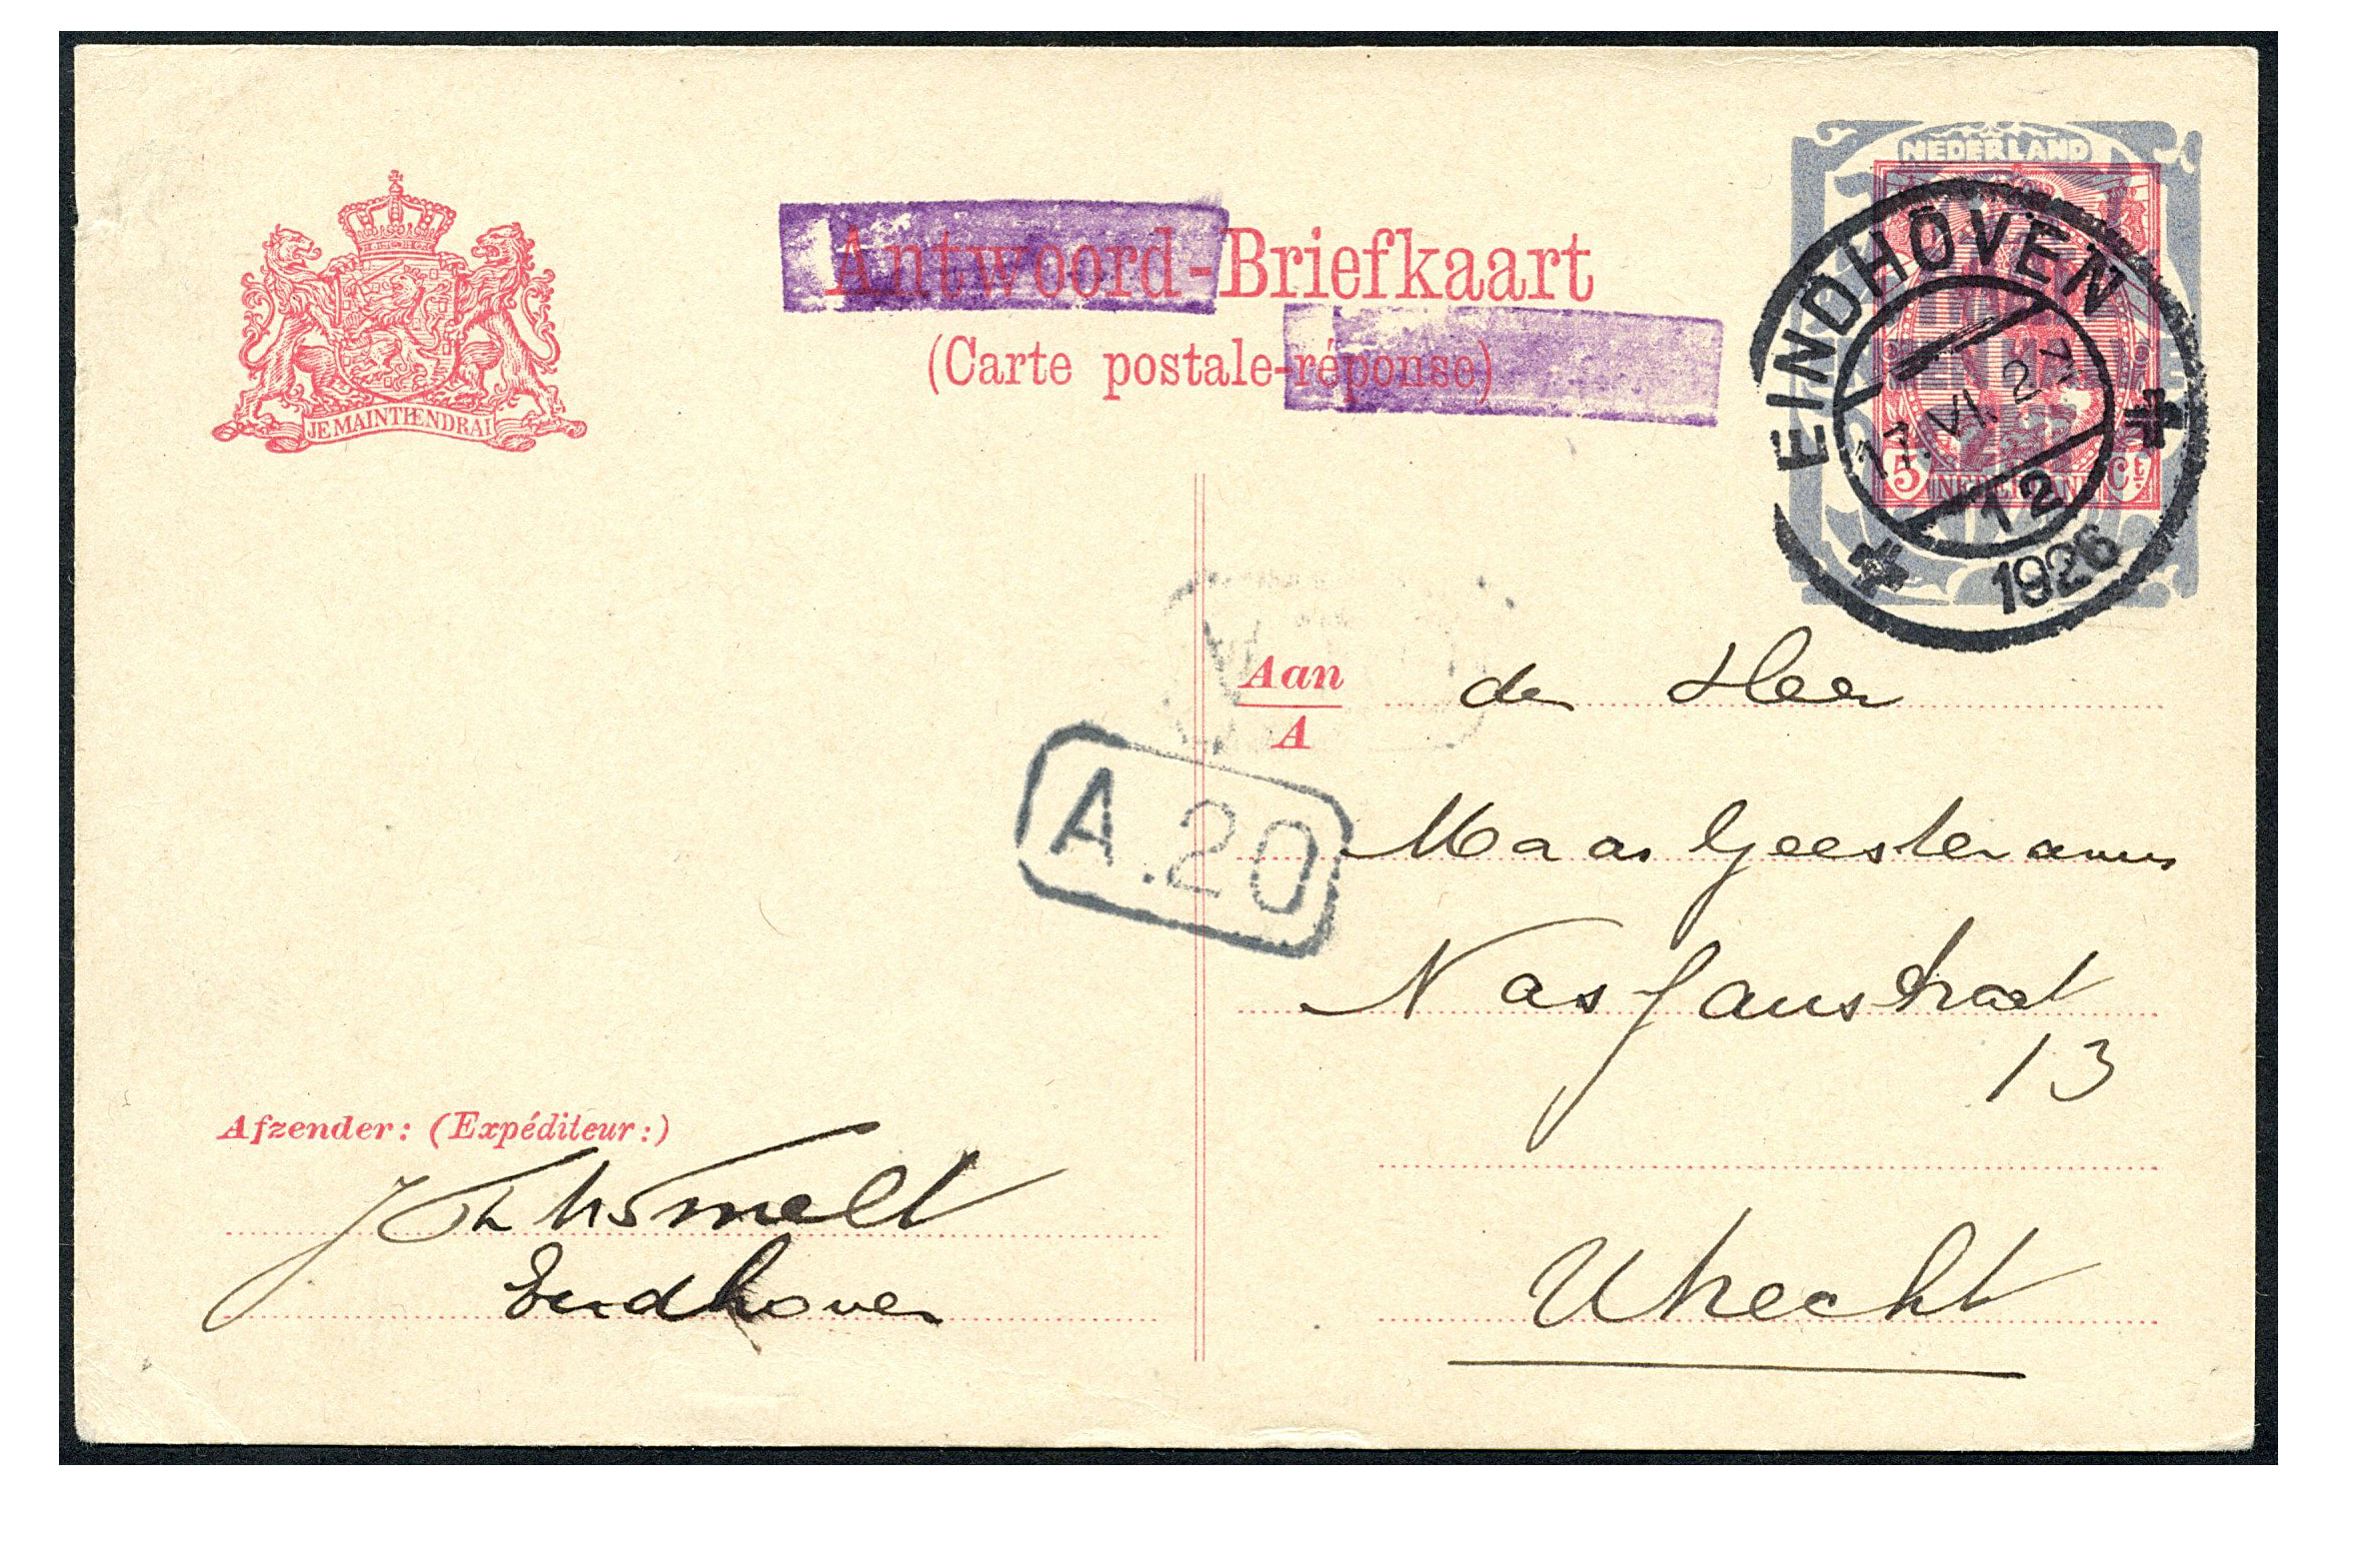 Antwoord-Briefkaart
(Carte postale-réponse)
JE MAINTIENDRAI
NEDERLAND
5 Ct
NEDERLAND
EINDHOVEN
17.VI. 2-
12
1926
Aan
A
de Heer
Maas Geesteranus
Nassaustraat
13
Utrecht
A.20
Afzender: (Expéditeur:)
Eindhoven